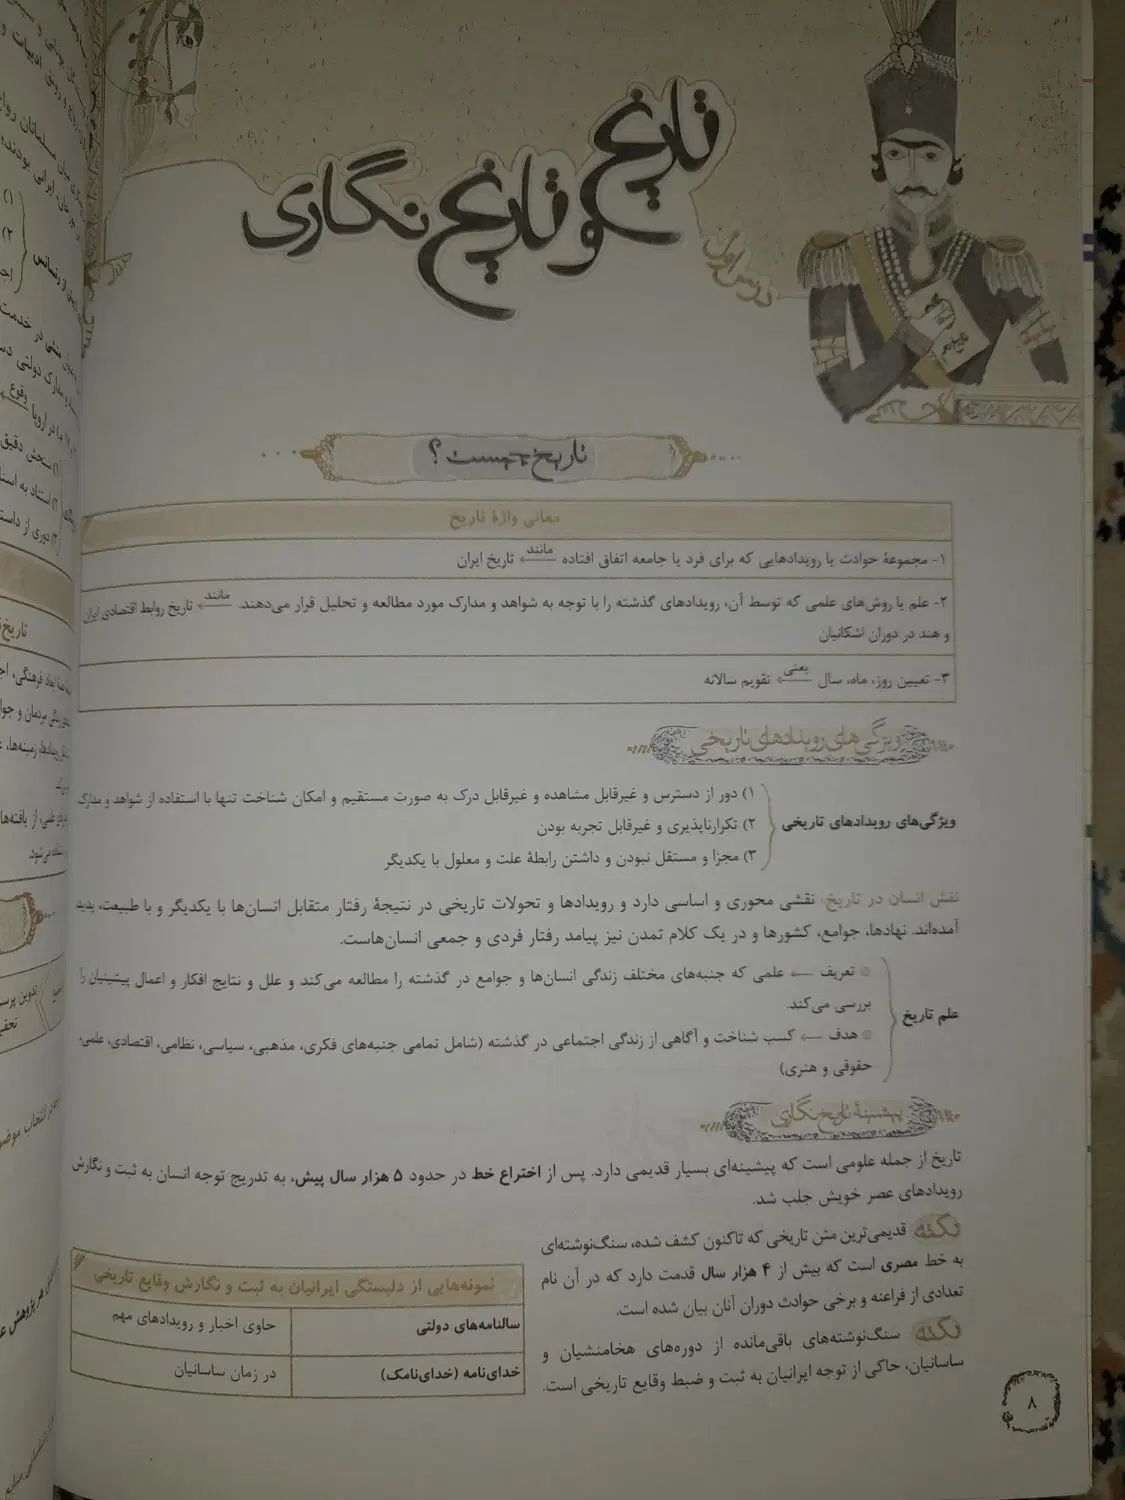 تاریخ و تاریخ نگاری
درس اول
تاریخ چیست؟
معانی واژهٔ تاریخ
۱- مجموعهٔ حوادث یا رویدادهایی که برای فرد یا جامعه اتفاق افتاده مانند ← تاریخ ایران
۲- علم یا روش‌های علمی که توسط آن، رویدادهای گذشته را با توجه به شواهد و مدارک مورد مطالعه و تحلیل قرار می‌دهند. مانند ← تاریخ روابط اقتصادی ایران
و هند در دوران اشکانیان
۳- تعیین روز، ماه، سال یعنی ← تقویم سالانه
ویژگی‌های رویدادهای تاریخی
ویژگی‌های رویدادهای تاریخی
۱) دور از دسترس و غیرقابل مشاهده و غیرقابل درک به صورت مستقیم و امکان شناخت تنها با استفاده از شواهد و مدارک
۲) تکرارناپذیری و غیرقابل تجربه بودن
۳) مجزا و مستقل نبودن و داشتن رابطهٔ علت و معلول با یکدیگر
نقش انسان در تاریخ: نقشی محوری و اساسی دارد و رویدادها و تحولات تاریخی در نتیجهٔ رفتار متقابل انسان‌ها با یکدیگر و با طبیعت، پدید
آمده‌اند. نهادها، جوامع، کشورها و در یک کلام تمدن نیز پیامد رفتار فردی و جمعی انسان‌هاست.
علم تاریخ
تعریف ← علمی که جنبه‌های مختلف زندگی انسان‌ها و جوامع در گذشته را مطالعه می‌کند و علل و نتایج افکار و اعمال پیشینیان را
بررسی می‌کند.
هدف ← کسب شناخت و آگاهی از زندگی اجتماعی در گذشته (شامل تمامی جنبه‌های فکری، مذهبی، سیاسی، نظامی، اقتصادی، علمی،
حقوقی و هنری)
پیشینهٔ تاریخ‌نگاری
تاریخ از جمله علومی است که پیشینه‌ای بسیار قدیمی دارد. پس از اختراع خط در حدود ۵ هزار سال پیش، به تدریج توجه انسان به ثبت و نگارش
رویدادهای عصر خویش جلب شد.
نکته قدیمی‌ترین متن تاریخی که تاکنون کشف شده، سنگ‌نوشته‌ای
به خط مصری است که بیش از ۴ هزار سال قدمت دارد که در آن نام
تعدادی از فراعنه و برخی حوادث دوران آنان بیان شده است.
نکته سنگ‌نوشته‌های باقی‌مانده از دوره‌های هخامنشیان و
ساسانیان، حاکی از توجه ایرانیان به ثبت و ضبط وقایع تاریخی است.
نمونه‌هایی از دلبستگی ایرانیان به ثبت و نگارش وقایع تاریخی
سالنامه‌های دولتی حاوی اخبار و رویدادهای مهم
خدای‌نامه (خدای‌نامک) در زمان ساسانیان
۸